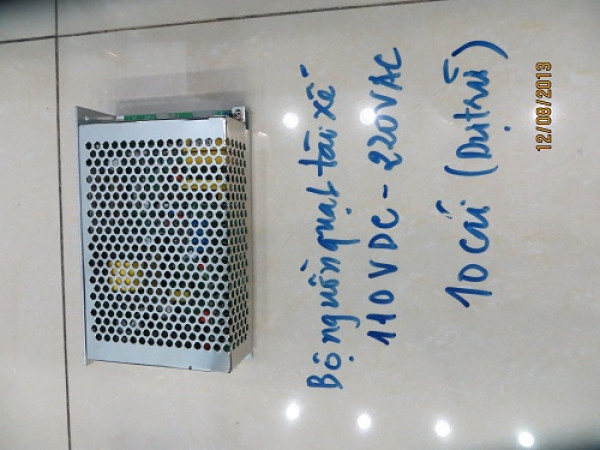 Bộ nguồn quạt tài xế
110VDC - 220VAC
10 cái (Dự trù)
12/08/2013